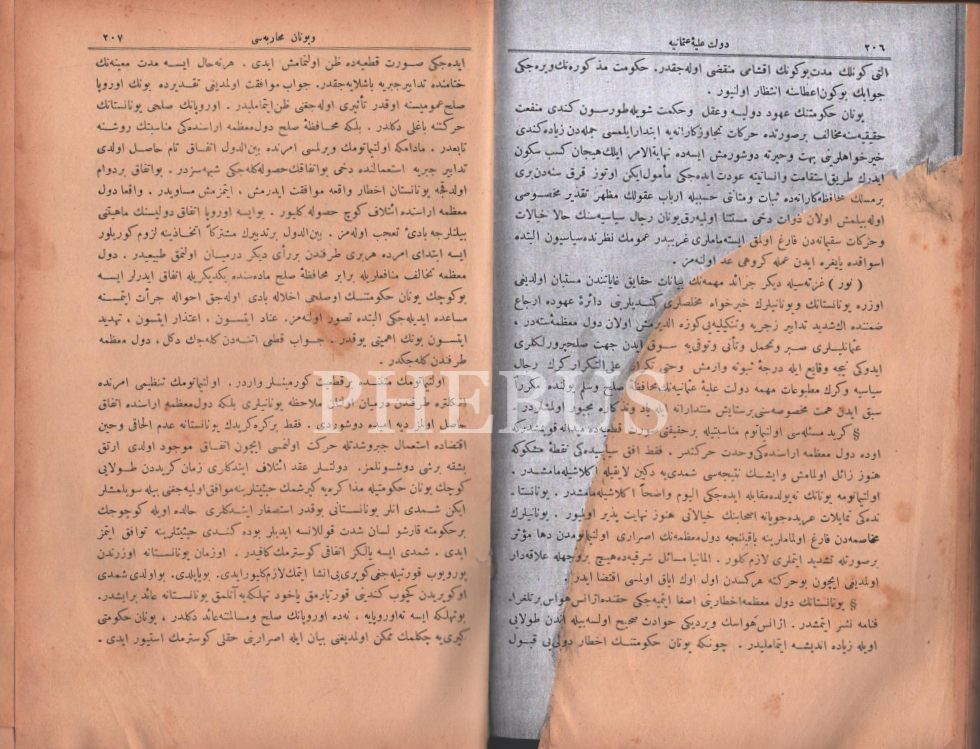 ٢٠٦
دولت عليهٔ عثمانيه
التى كونلك مدت بوكونك اقشامى منقضى اوله جقدر. حكومت مذكوره نك ويره جكى
جوابك بوكون اعطاسنه انتظار اولنيور .
يونان حكومتنك عهود دوليه وعقل وحكمت شويله طورسون كندى منفعت
حقيقيه سنه مخالف برصورتده حركات تجاوزكارانه يه ابتدار ايلمسى جمله دن زياده كندى
خيرخواهلرنى بهت وحيرته دوشورمش ايسه ده نهاية الامر ايلك هيجان كسب سكون
ايدرك طريق استقامت وانسانيته عودت ايده جكى مأمول ايكن اوتوز قرق سنه دن برى
برمسلك محافظه كارانه ده ثبات ومتانتى حسبيله ارباب عقولك مظهر تقدير مخصوصى
اوله بيلمش اولان ذوات دخى مستثنا اوليه رق يونان رجال سياسيه سنك حالا خيالات
وحركات سقيمانه دن فارغ اولمق ايسته ماملرى غريبدر عمومك نظرنده سياسيون البنده
اسواقده يايغره ايدن عمله كروهى عد اولنه مز .
( نور ) غزته سيله ديكر جرائد مهمه نك بيانات حقايق غاياتندن مستبان اولديغى
اوزره يونانستانك ويونانيلرك خيرخواه مخلصلرى كنديلرينى دائرهٔ عهوده ارجاع
ضمننده اك شديد تدابير زجريه وتنكيليه يى كوزه الديرمش اولان دول معظمه ستدر .
عثمانليلرى صبر وتحمل وتأنى وتوقى يه سوق ايدن جهت صلحپرورلكلرى
ايدوكى نيجه وقايع ايله درجهٔ ثبوته وارمش وحتى تكرار على التكرار كرك رجال
سياسيه وكرك مطبوعات مهمه دولت عليهٔ عثمانيه نك محافظهٔ صلح وسلم يولنده مكرراً
سبق ايدن همت مخصوصه سنى ستايش متدارانه ايله ياد وتذكاره مجبور اولمشلردر .
§ كريد مسئله سى اولتيماتوم مناسبتيله برحقيقى صورت قطعيه ده ميدانه قويمشدر
اوده دول معظمه اراسنده كى وحدت حركتدر. فقط افق سياسيده كى نقطهٔ مشكوكه
هنوز زائل اولمامش وايشك نتيجه سى شمدى يه دكين لايقيله اكلاشيله مامشدر .
اولتيماتومه يونانك نه يولده مقابله ايده جكى اليوم واضحاً اكلاشيله مامشدر. يونانستا ـ
نده كى تمايلات عربده جويانه اصحابنك خيالاتى هنوز نهايت پذير اولميور . يونانيلرك
مخاصمه دن فارغ اولماملرينه باقيلنجه دول معظمه نك اصرارى اولتيماتومدن دها مؤثر
برصورتله تشديد ايتملرى لازم كلور . المانيا مسائل شرقيه ده هيچ بروجهله علاقه دار
اولمديغى ايچون بوحركته هركسدن اول اوك اياق اولمسى اقتضا ايدر .
§ يونانستانك دول معظمه اخطارينى اصغا ايتميه جكى حقنده اژانس هواس برتلغراـ
فنامه نشر ايتمشدر. اژانس هواسك ويرديكى حوادث صحيح اولسه بيله اندن طولايى
اويله زياده انديشه ايتمامليدر . چونكه يونان حكومتنك اخطار دولى يى قبول
ويونان محاربه سى
٢٠٧
ايده جكى صورت قطعيه ده ظن اولنمامش ايدى . هرنه حال ايسه مدت معينه نك
ختامنده تدابير جبريه باشلايه جقدر. جواب موافقت اولمديغى تقديرده بونك اوروپا
صلح عموميسنه اوقدر تأثيرى اوله جغى ظن ايتمامليدر . اوروپانك صلحى يونانستانك
حركتنه باغلى دكلدر. بلكه محافظهٔ صلح دول معظمه اراسنده كى مناسبتك روشنه
تابعدر. مادامكه اولتيماتومك ويرلمسى امرنده بين الدول اتفاق تام حاصل اولدى
تدابير جبريه استعمالنده دخى بواتفاقك حصوله كله جكى شبهه سزدر. بواتفاق بردوام
اولدقجه يونانستان اخطار واقعه موافقت ايدرمش ، ايتمزمش مساويدر. واقعا دول
معظمه اراسنده ائتلاف كوچ حصوله كليور . بوايسه اوروپا اتفاق دوليسنك ماهيتى
بيلنلرجه بادئ تعجب اوله مز. بين الدول برتدبيرك مشتركاً اتخاذينه لزوم كوريلور
ايسه ابتداى امرده هربرى طرفندن بررأى ديكر درميان اولنمق طبيعيدر. دول
معظمه تخالف منافعلريله برابر محافظهٔ صلح ماده سنده يكديكريله اتفاق ايدرلر ايسه
بوكوچك يونان حكومتنك اوصلحى اخلاله بادى اوله جق احواله جرأت ايتمسنه
مساعده ايديله جكى البته تصور اولنه مز. عناد ايتسون ، اعتذار ايتسون ، تهديد
ايتسون بونك اهميتى يوقدر. جواب قطعى اتنه دن كله جك دكل ، دول معظمه
طرفندن كله جكدر.
اولتيماتومك متننده برقطعيت كورينملر واردر. اولتيماتومك تنظيمى امرنده
انكلتره طرفندن درميان اولنان ملاحظه يونانيلرى بلكه دول معظمه اراسنده اتفاق
حاصل اولمدى ديه اميده دوشوردى. فقط بركره كريدك يونانستانه عدم الحاقى وحين
اقتضاده استعمال جبروشدتله حركت اولنمسى ايچون اتفاق موجود اولدى ارتق
بشقه برشى دوشونلمز. دولتلر عقد ائتلاف ايتدكلرى زمان كريددن طولايى
كوچك يونان حكومتيله مذاكره يه كيرشمك حيثيتلرينه موافق اوليه جغنى بيله سويلمشلر
ايكن شمدى انلر يونانستانى بوقدر استصغار ايتدكلرى حالده اويله كوچوجك
برحكومته قارشو لسان شدت قوللانسه ايديلر بوده كندى حيثيتلرينه توافق ايتمز
ايدى. شمدى ايسه يالكز اتفاقى كوسترمك كافيدر. اوزمان يونانستانه اوزرندن
يوروبوب قورتيله جغى كوپرى يى انشا ايتمك لازم كليور ايدى. بوياپلدى. بواولدى شمدى
اوكوپريدن كچوب كندينى قورتارمق ياخود تهلكه يه آتلمق يونانستانه عائد برايشدر.
بوتهلكه ايسه نه اوروپايه ، نه ده اوروپانك صلح ومسالمتنه عائد دكلدر ، يونان حكومتى
كيرى يه چكلمك ممكن اولمديغنى بيان ايله اصرارينى حقلى كوسترمك استيور ايدى .
PHEBUS